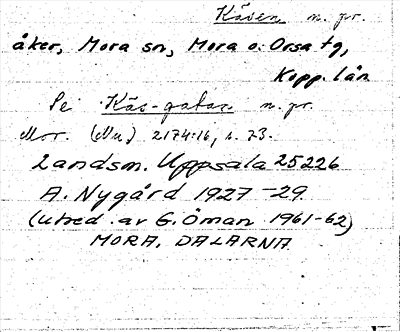 Käven n. pr.
åker, Mora sn, Mora o. Orsa tg,
Kopp. län
Se Käs-gatan n. pr.
Mor. (Mu.) 2174:16, s. 73.
Landsm. Uppsala 25226
A. Nygård 1927-29.
(utred. av G. Öman 1961-62)
MORA, DALARNA